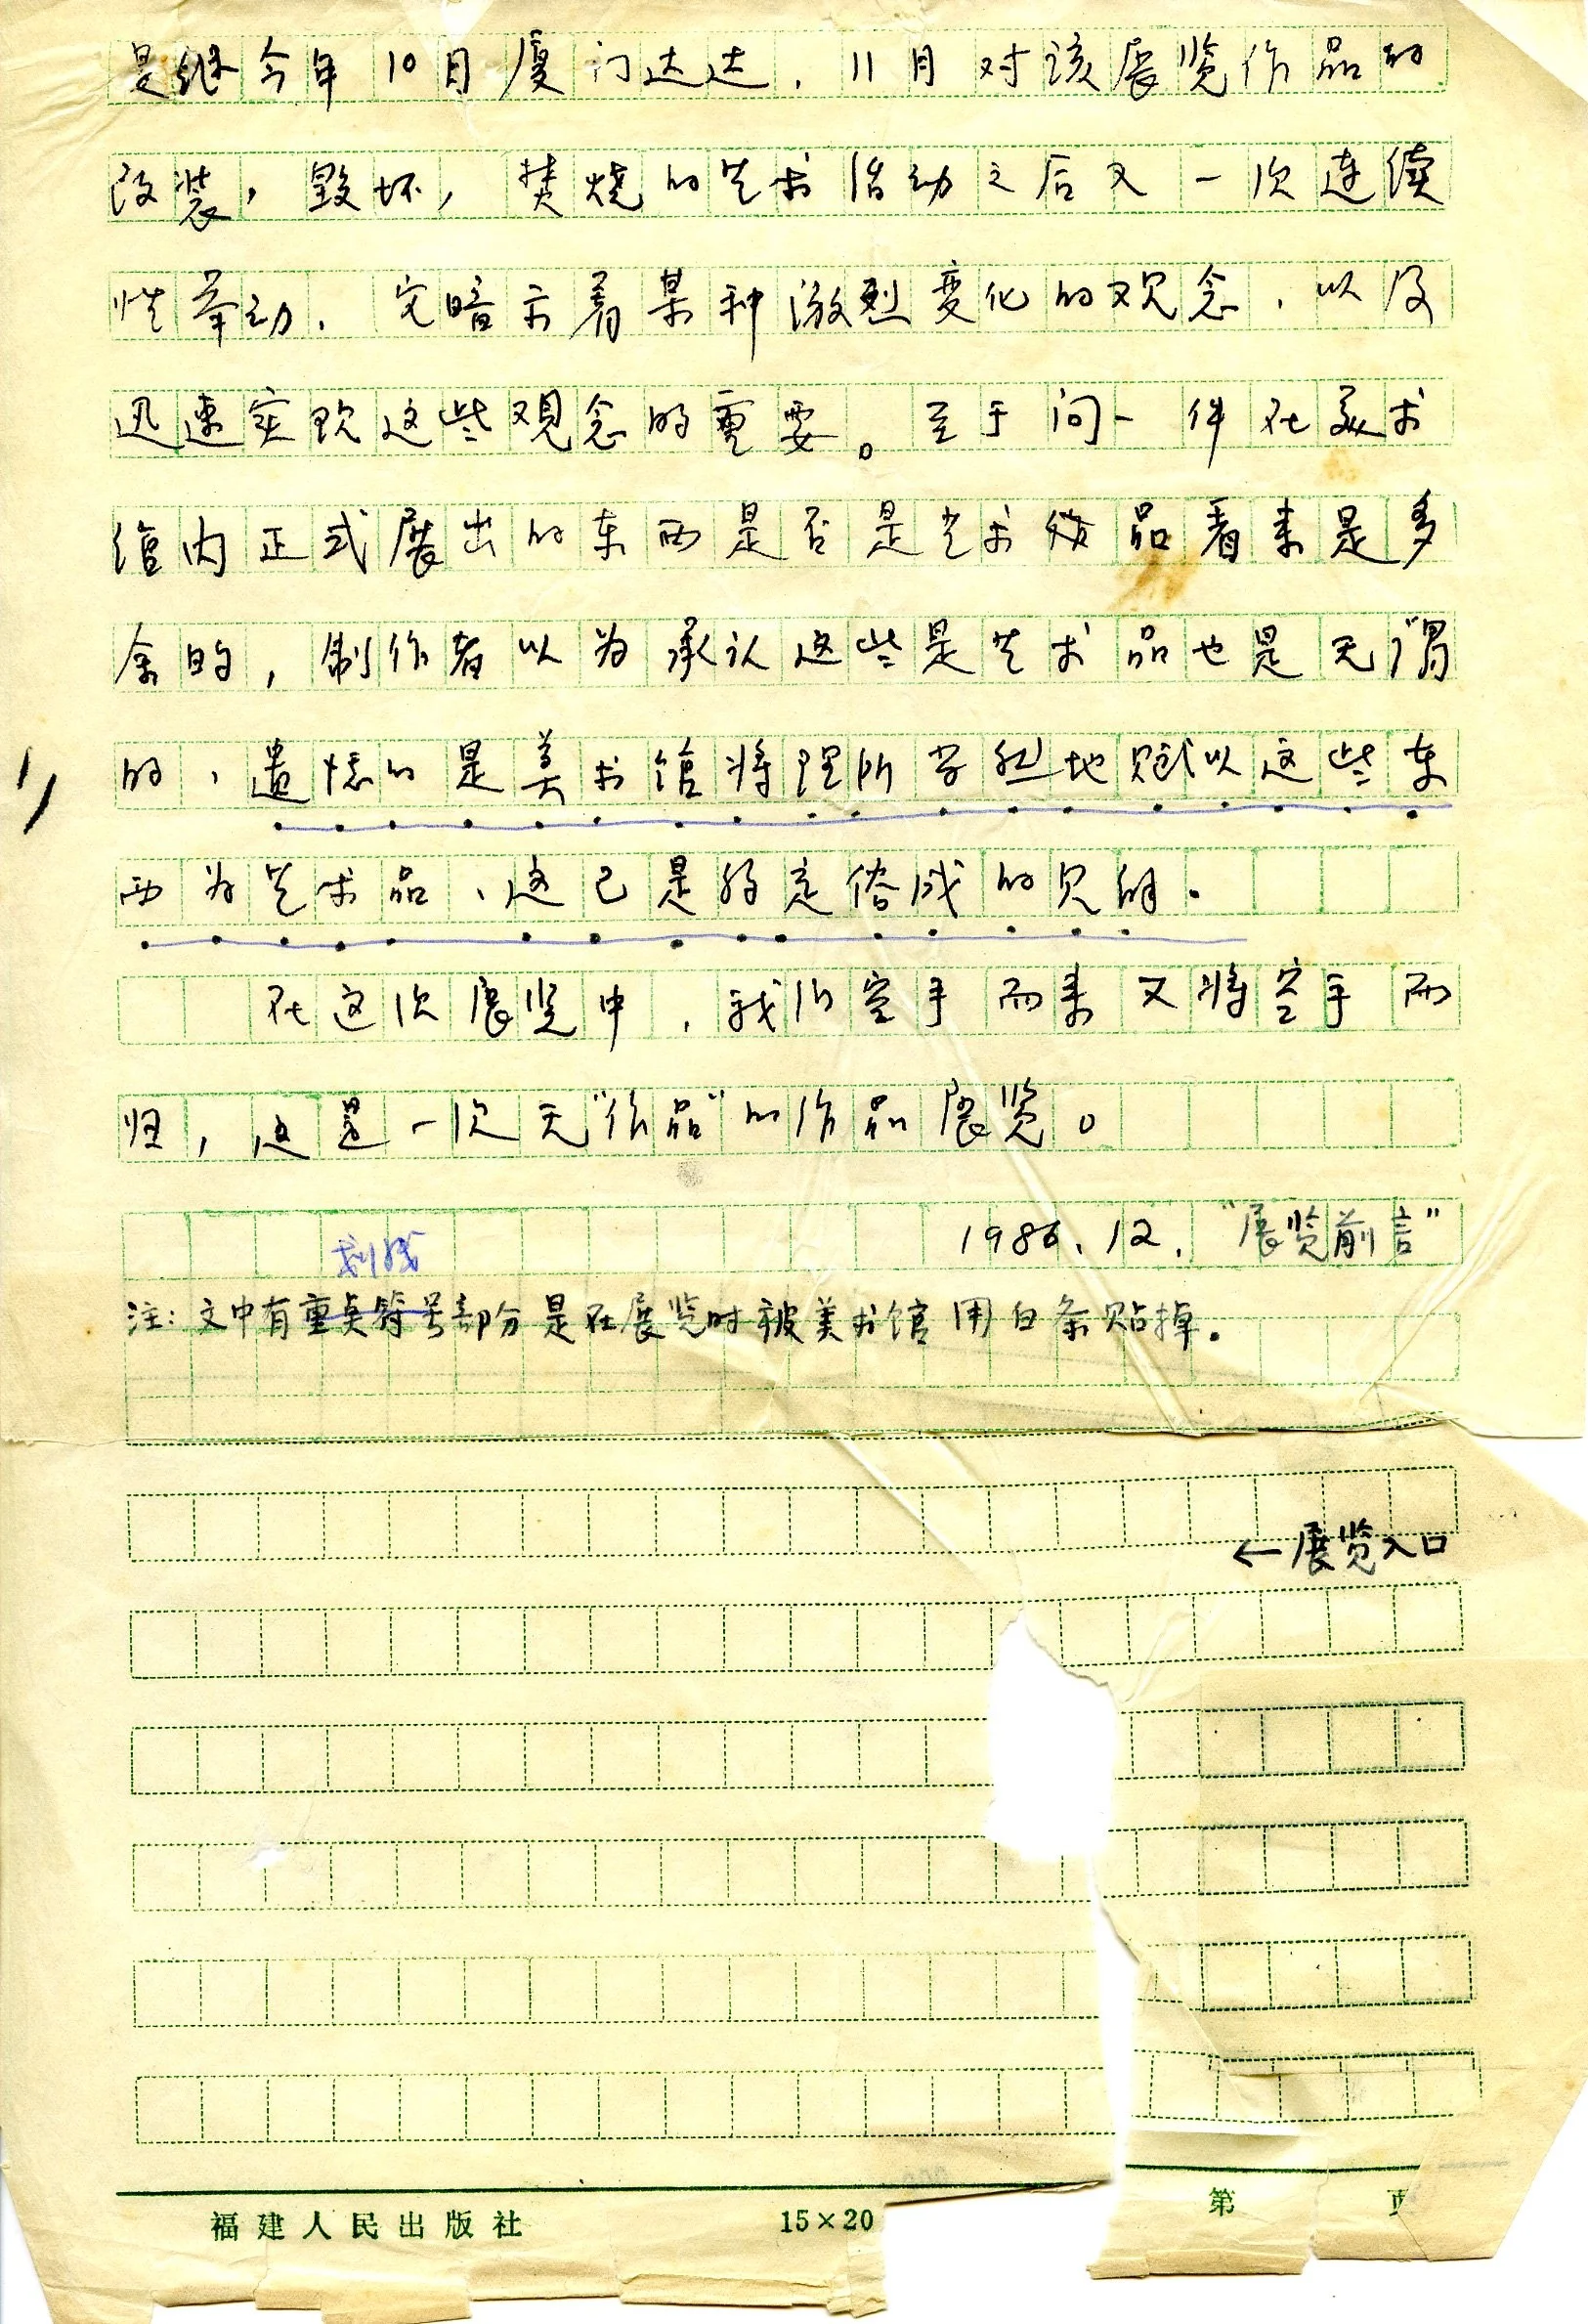 是继今年10月厦门达达，11月对该展览作品的
改装，毁坏，焚烧的艺术活动之后又一次连续
性举动，它暗示着某种激烈变化的观念，以及
迅速实现这些观念的重要。至于问一件在美术
馆内正式展出的东西是否是艺术作品看来是多
余的，制作者以为承认这些是艺术品也是无谓
的，遗憾的是美术馆将理所当然地赋以这些东
西为艺术品，这已是约定俗成的见解。
在这次展览中，我们空手而来又将空手而
归，这是一次无“作品”的作品展览。
1986.12.“展览前言”
划线
注：文中有重点符号部分是在展览时被美术馆用白条贴掉。
←展览入口
福建人民出版社 15×20 第 页